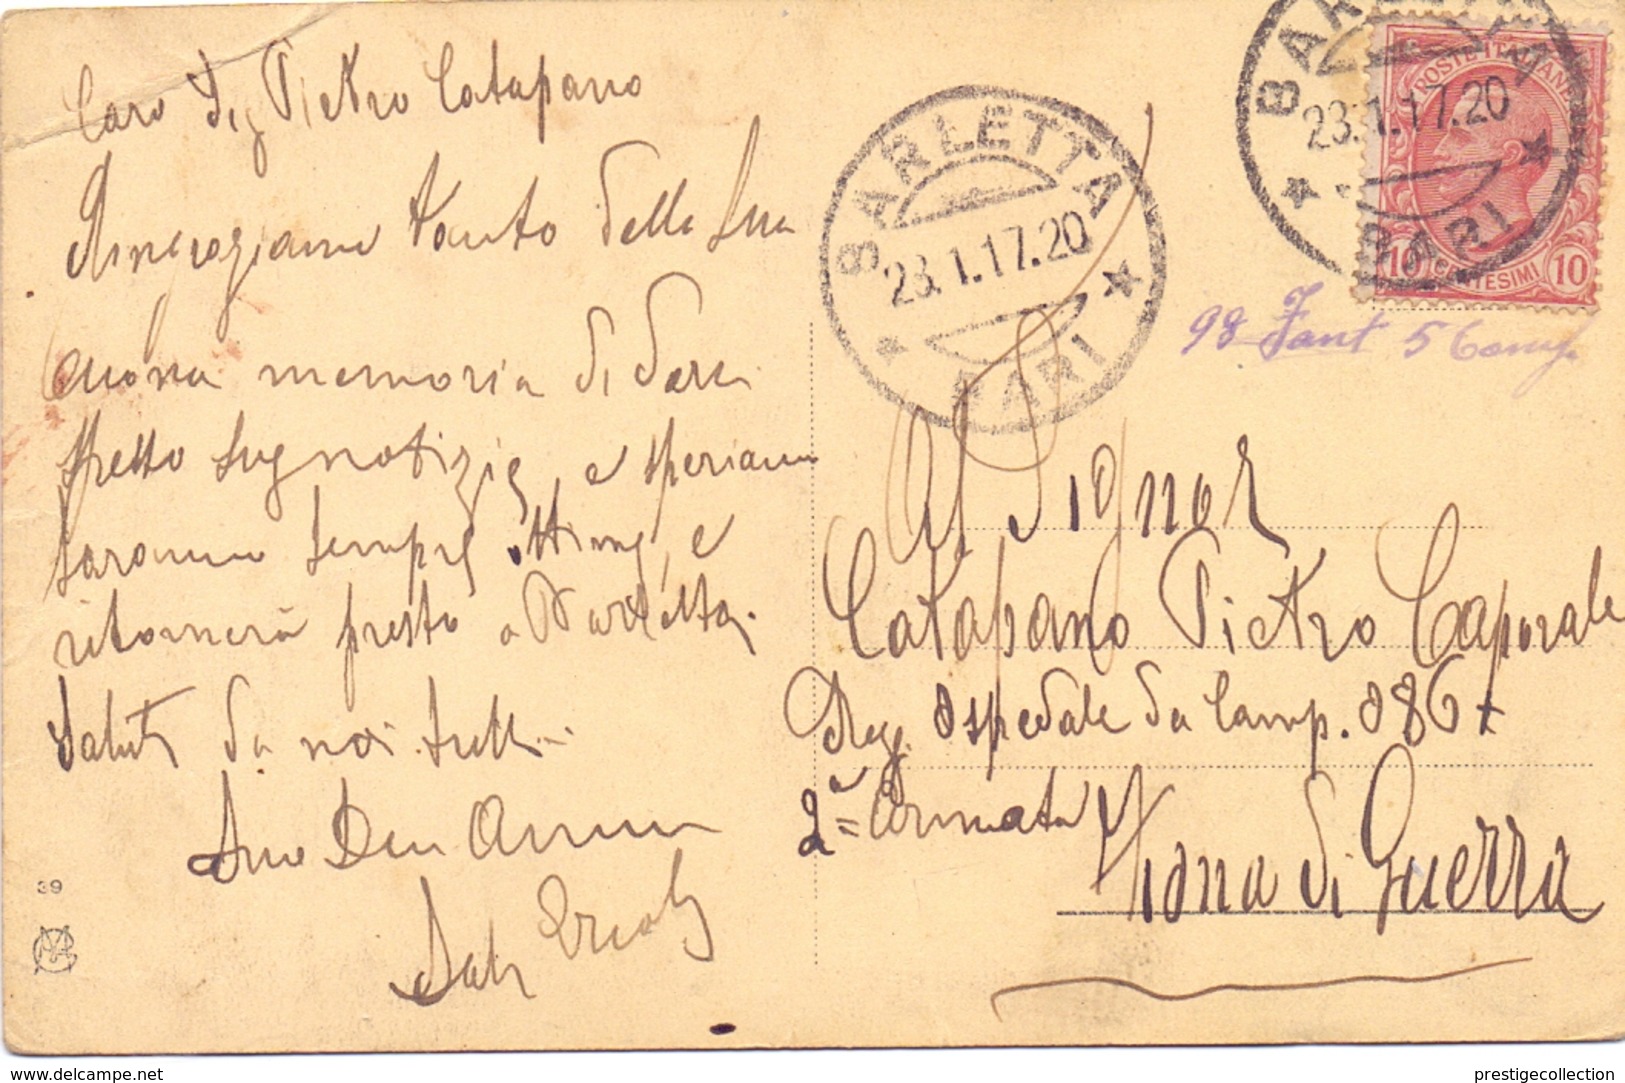 Caro Sig Pietro Catapano
Ringraziamo tanto della Sua
buona memoria di darci
spesso sue notizie, e speriamo
saranno sempre ottime, e
ritornerà presto a Barletta.
Saluti da noi tutti
Suo Dev
39
BARLETTA
23.1.17.20
BARI
BARLETTA
23.1.17.20
BARI
POSTE ITALIANE
10 CENTESIMI 10
98 Fant 5 Comp.
Al Signor
Catapano Pietro Caporale
Reg. Ospedale da Camp. 086
2ª Armata Zona di Guerra
delcampe.net
prestigecollection